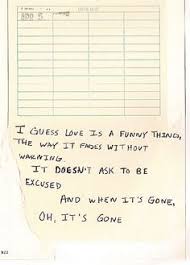 I GUESS LOVE IS A FUNNY THING,
THE WAY IT FADES WITHOUT
WARNING.
IT DOESN'T ASK TO BE
EXCUSED
AND WHEN IT'S GONE,
OH, IT'S GONE